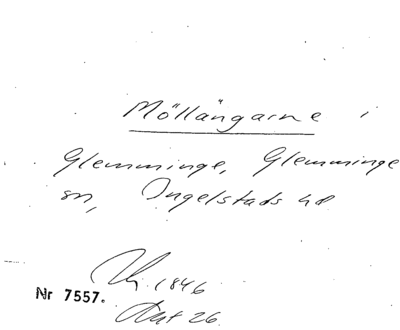 Möllängarne i
Glemminge, Glemminge
sn, Ingelstads hd
1846
Nr 7557.
Akt 26